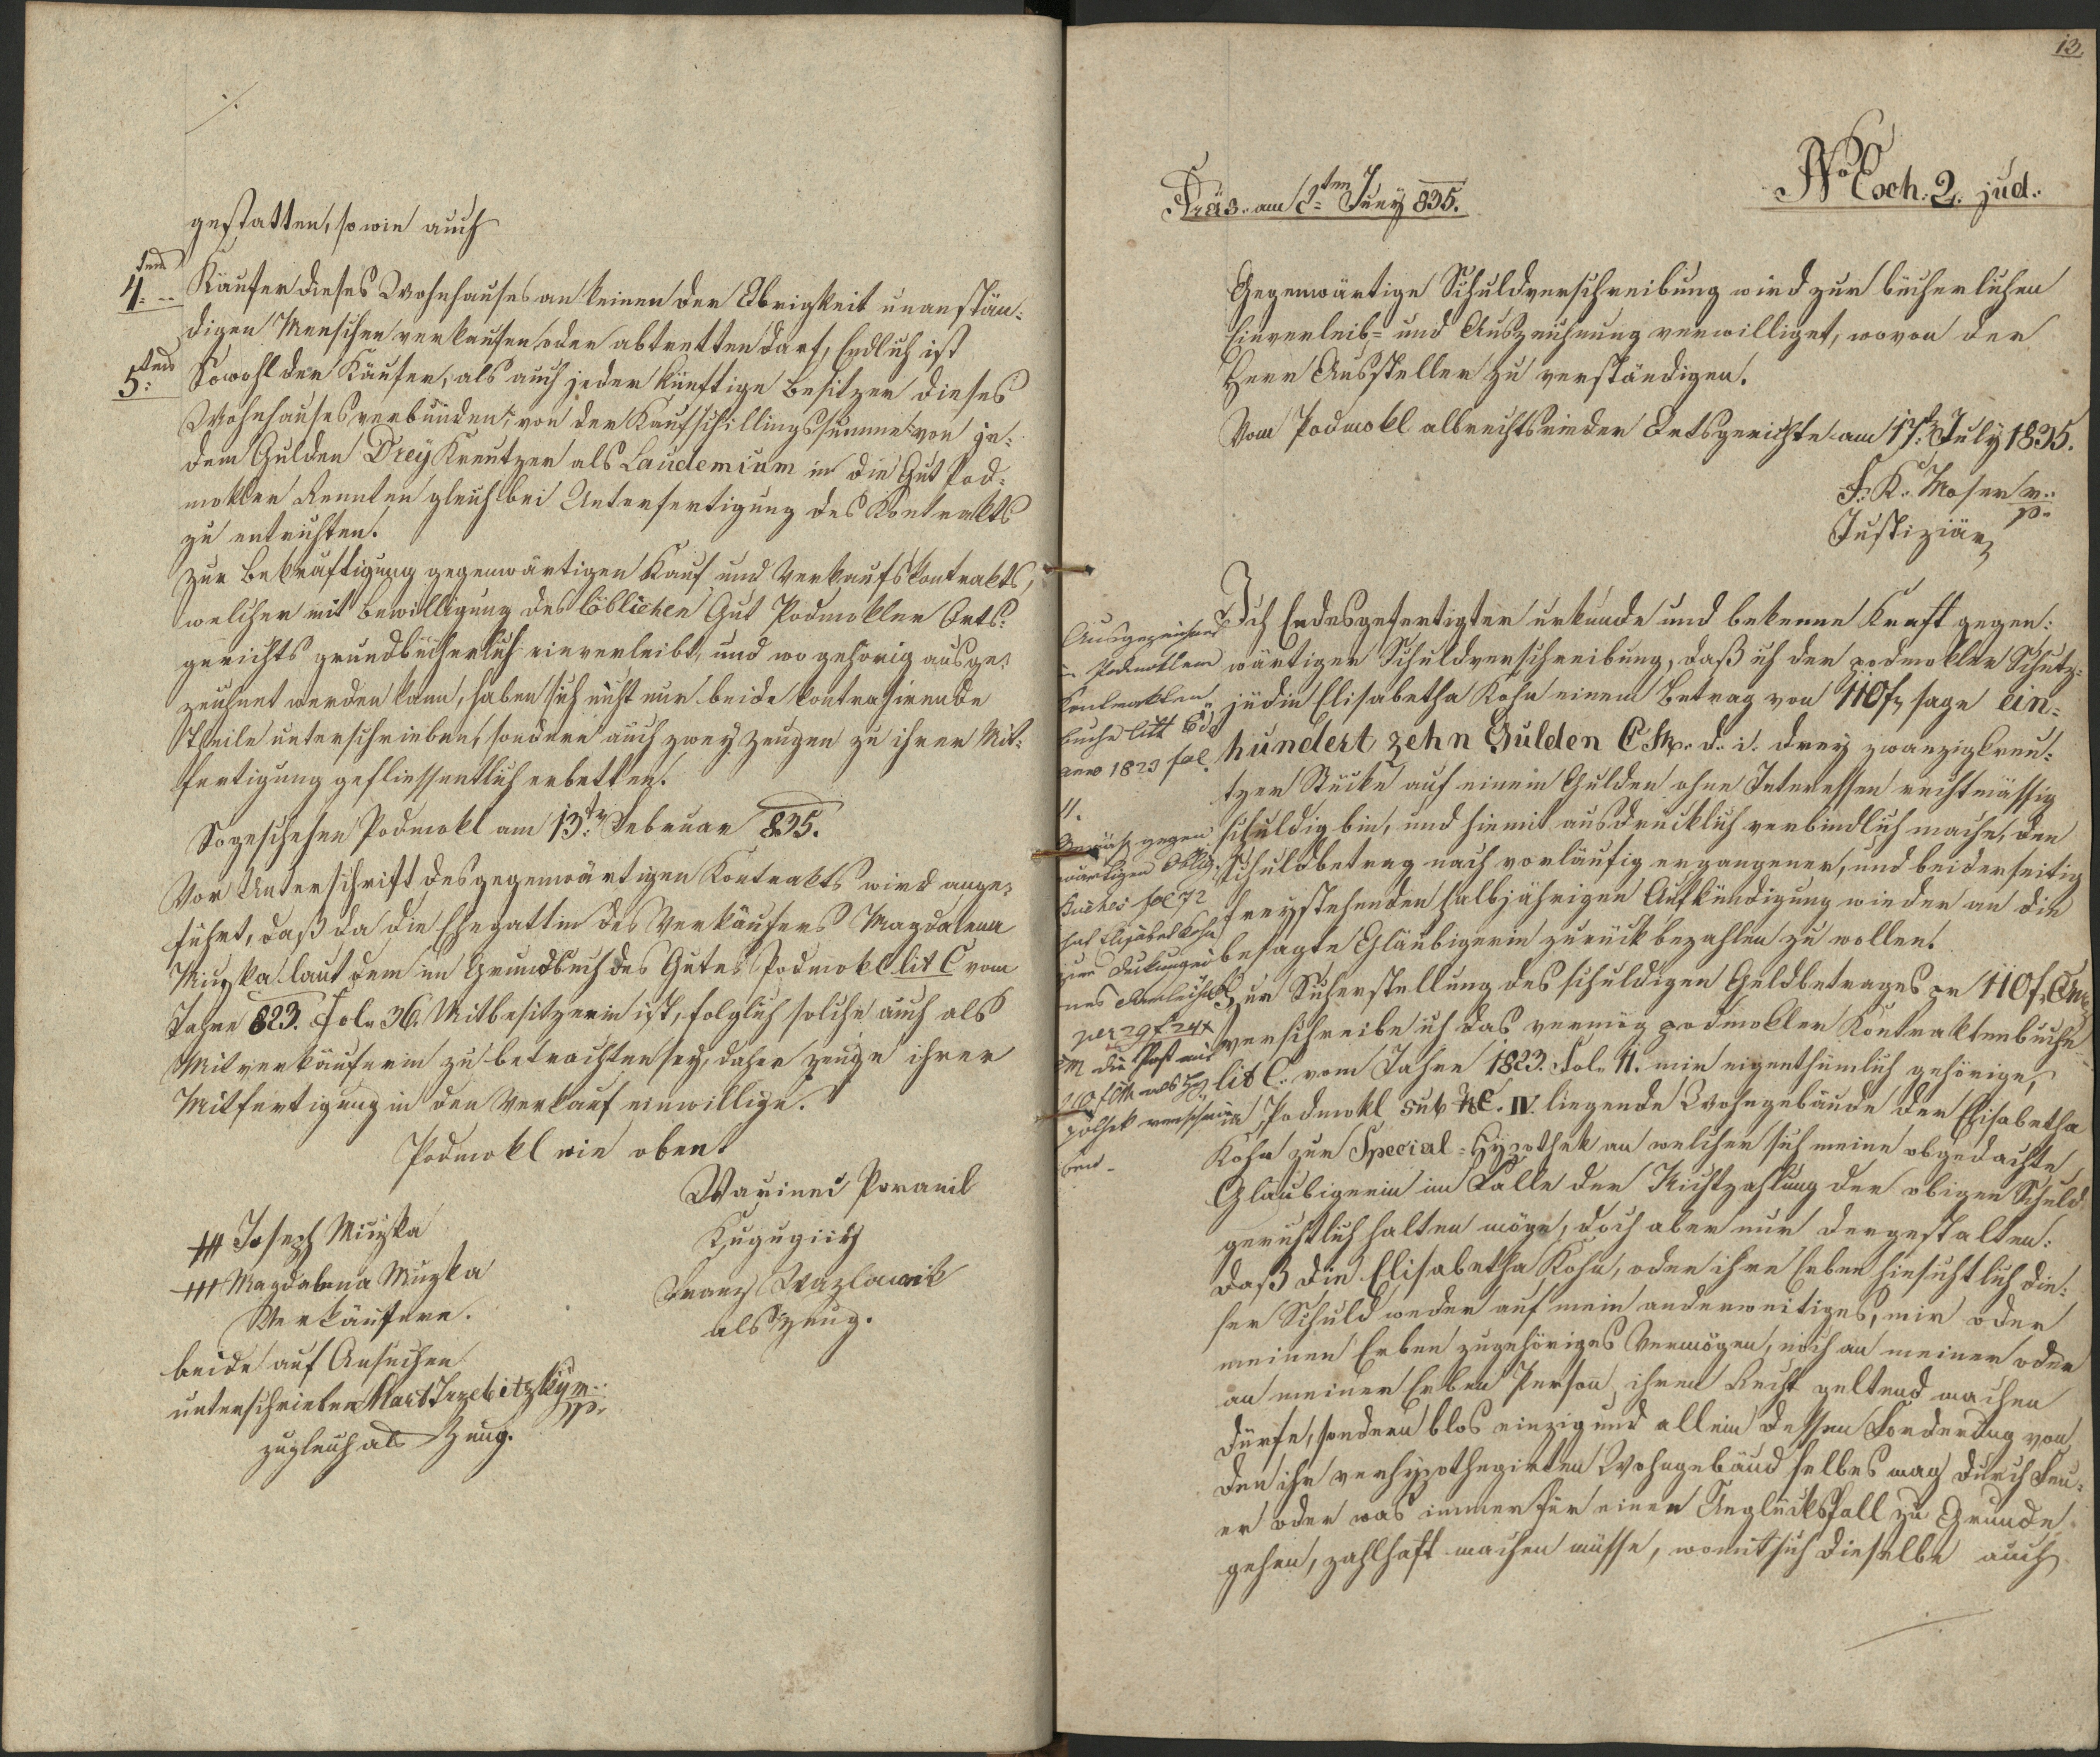 ./.
gestatten, so wie auch
4tens Käufer dieses Wohnhauses an keinen der Obrigkeit unanstän-
digen Menschen verkaufen oder abtretten darf, Endlich ist
5tens Sowohl der Käufer, als auch jeder künftige Besitzer dieses
Wohnhauses verbunden, von der Kaufschillingssumme von je-
dem Gulden Drey Kreutzer als Laudemium in die Gut Pod-
mokler Rennten gleich bei Unterfertigung des Kontrakts
zu entrichten.
Zur Bekräftigung gegenwärtigen Kauf und Verkaufskontrakts,
welcher mit Bewilligung des löblichen Gut Podmokler Orts-
gerichts grundbücherlich einverleibt, und wo gehörig ausge-
zeichnet werden kann, haben sich nicht nur beide kontrahirende
Theile unterschrieben, sondern auch zwey Zeugen zu ihrer Mit-
fertigung geflissentlich erbetten.
So geschehen Podmokl am 13ten Februar 835.
Vor Unterschrift des gegenwärtigen Kontrakts wird ange-
führt, daß da die Ehegattin des Verkäufers Magdalena
Muzka laut dem im Grundbuch des Gutes Podmokl lit C vom
Jahre 823. Fol. 36. Mitbesitzerin ist, folglich solche auch als
Mitverkäuferin zu betrachten sey, daher zeuge ihrer
Mitfertigung in den Verkauf einwillige.
Podmokl wie oben
+++ Joseph Muzka
+++ Magdalena Muzka
Verkäufere.
beide auf Ansuchen
unterschrieben Mart Trzebitzky m.p.
zugleich als Zeug.
Franz Wazlawik
als Zeug.
13.
Präs. am 2ten July 835.
No Exh. 2. jud.
Gegenwärtige Schuldverschreibung wird zur bücherlichen
Einverleib- und Auszeichnung verwilliget, wovon der
Herr Aussteller zu verständigen.
Vom Podmokl albrechtsrieder Ortsgerichte am 17. July 1835.
F. K. Moser m.p.
Justiziär
Ich Endesgefertigter urkunde und bekenne Kraft gegen-
wärtiger Schuldverschreibung, daß ich der podmokler Schutz-
jüdin Elisabetha Kohn einem Betrag von 110 f, sage ein-
hundert zehn Gulden C.M. d. i. drey zwanzigkreu-
tzer Stücke auf einem Gulden ohne Interessen rechtmässig
schuldig bin, und hiemit ausdrucklich verbindlich mache, den
Schuldbetrag nach vorläufig ergangener, und beiderseitig
freystehenden halbjährigen Aufkündigung wieder an die
besagte Gläubigerin zurückbezahlen zu wollen.
Zur Sicherstellung des schuldigen Geldbetrages pr 110 f CM
verschreibe ich das vermög podmokler Kontraktenbuche
lit C. vom Jahre 1823. Fol. 11. mir eigenthümlich gehörige,
in Podmokl sub NC. IV. liegende Wohngebäude der Elisabetha
Kohn zur Special-Hypothek an welcher sich meine obgedachte
Glaubigerin im Falle der Nichtzahlung der obigen Schuld
gerichtlich halten möge, doch aber nur dergestalten:
daß die Elisabetha Kohn, oder ihre Erben hinsichtlich die-
ser Schuld weder auf mein anderweitiges, mir oder
meinen Erben zugehöriges Vermögen, noch an meiner oder
an meiner Erben Person, ihren Recht geltend machen
dürfe, sondern blos einzig und allein dessen Forderung von
den ihr verhypothegirten Wohngebäud selbes mag durch Feu-
er oder was immer für einen Unglücksfall zu Grunde
gehen, zahlhaft machen müsse, womit sich dieselbe auch
Ausgezeichnet
in Podmokler
Kontrakten
buche litt C de
anno 1823 fol.
11.
gegen
wärtigen Oblig.
Buches fol 72
hat Elisabet Kohn
zur Deckung ei-
nes
per 29 f 24 x
CM die Post mit
110 f CM als Hy-
pothek verschrie-
ben.